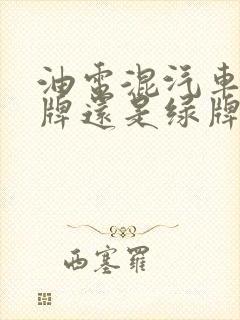 油電混汽車
牌還是綠牌
西塞羅